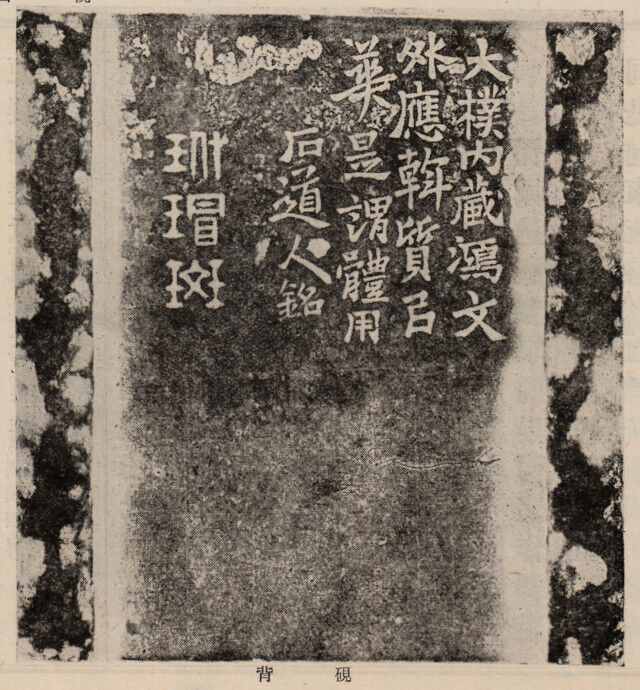 大樸內藏鴻文
外應斡質㠯
華是謂體用
后道人銘
瑁斑
硯背